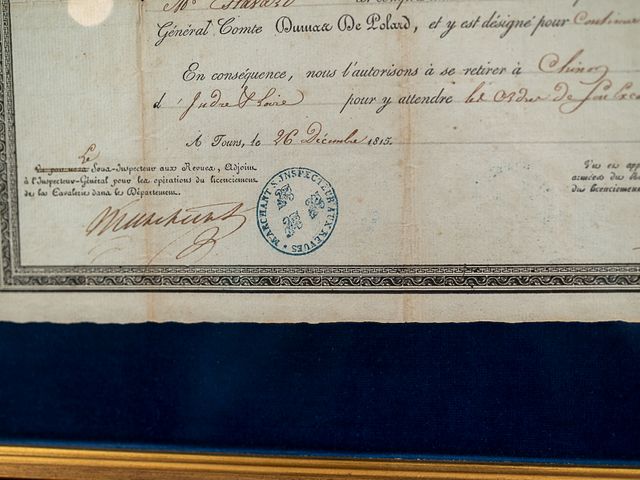 Mr
Général Comte Dumas De Polard, et y est désigné pour Continuer
En conséquence, nous l'autorisons à se retirer à Chinon
d' Indre & Loire pour y attendre les Ordres de
A Tours, le 26 Décembre 1815.
Le
Sous-Inspecteur aux Revues, Adjoint
à l'Inspecteur-Général pour les opérations du licenciement
de la Cavalerie dans le Département.
Vu en
armées du
du licenciement
Marchant
MARCHANT S. INSPECTEUR AUX REVUES